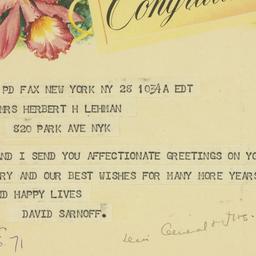 Congratu
PD FAX NEW YORK NY 28 1034A EDT
MRS HERBERT H LEHMAN
820 PARK AVE NYK
ND I SEND YOU AFFECTIONATE GREETINGS ON YO
RY AND OUR BEST WISHES FOR MANY MORE YEARS
ND HAPPY LIVES
DAVID SARNOFF.
71
General